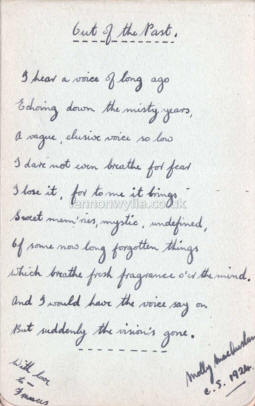 Out of the Past.
I hear a voice of long ago
Echoing down the misty years,
A vague, elusive voice so low
I dare not even breathe for fear
I lose it, for to me it brings
Sweet mem'ries, mystic, undefined,
Of some now long forgotten things
Which breathe fresh fragrance o'er the mind.
And I would have the voice say on
But suddenly the vision's gone.
With love
to
Frances
Molly
C.S. 1924.
lennonwylie.co.uk